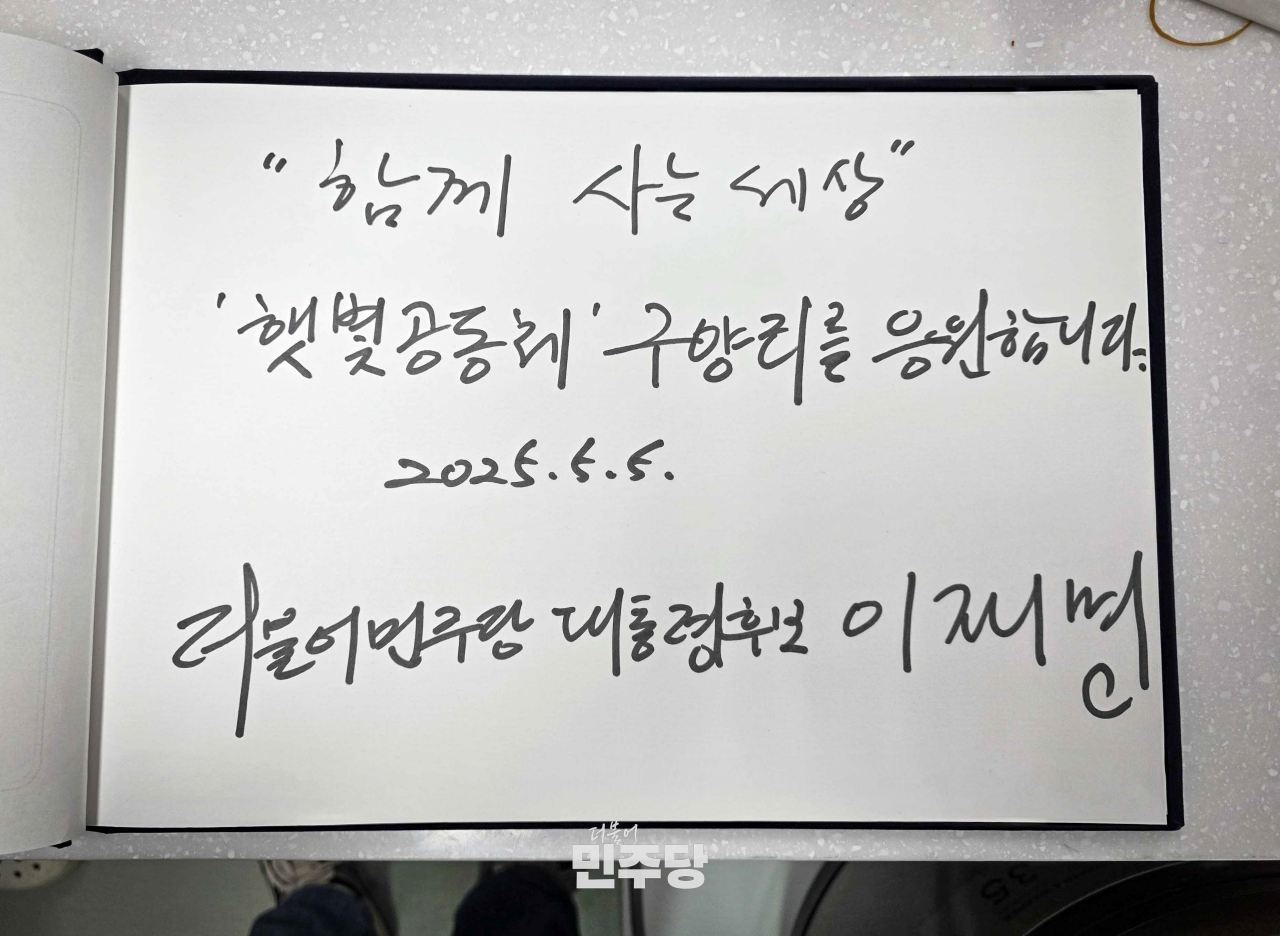 "함께 사는 세상"
'햇빛공동체' 구양리를 응원합니다.
2025.5.5.
더불어민주당 대통령후보 이재명
더불어
민주당
35